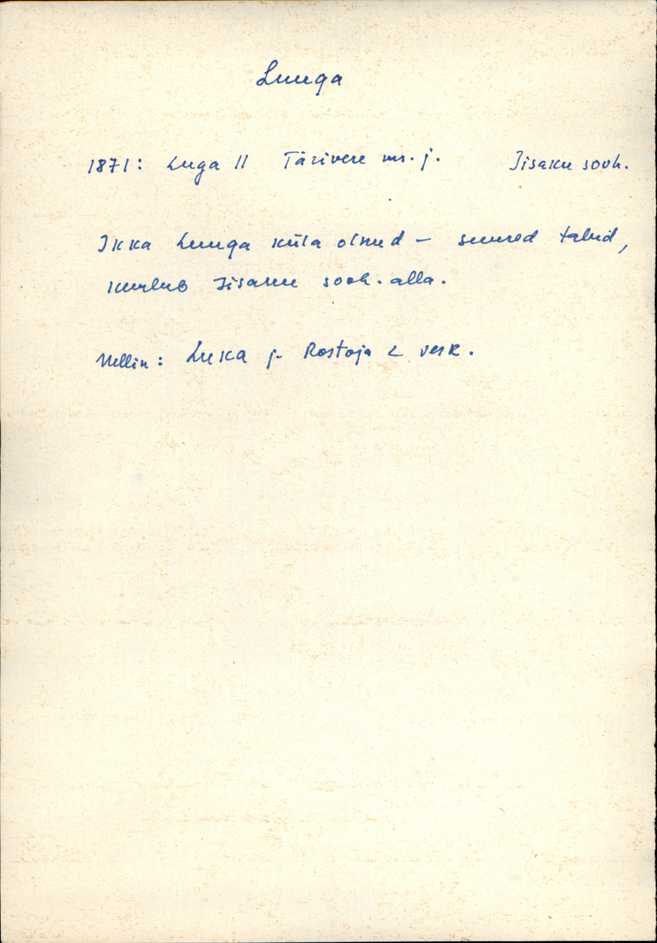 Luuga
1871: Luga II Tärivere ms. j. Iisaku sovh.
Ikka Luuga küla olnud – suured talud,
kuulub Iisaku sovh. alla.
Mellin: Luka j. Rostoja 2 vesk.